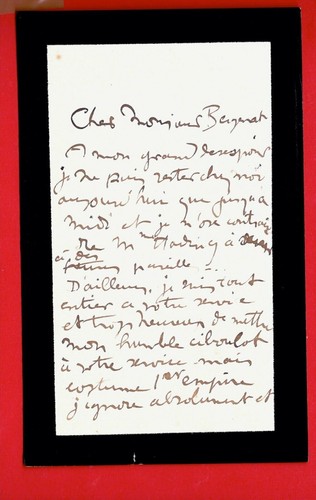 Cher Monsieur Bergerat
A mon grand desespoir
je ne puis rester chez moi
aujourd'hui que jusqu'à
midi et je n'ose contrain
dre Mme Hading à
à des
pareille...
D'ailleurs, je suis tout
entier à votre service
et trop heureux de mettre
mon humble ciboulot
à votre service mais
costume 1er empire
j'ignore absolument et